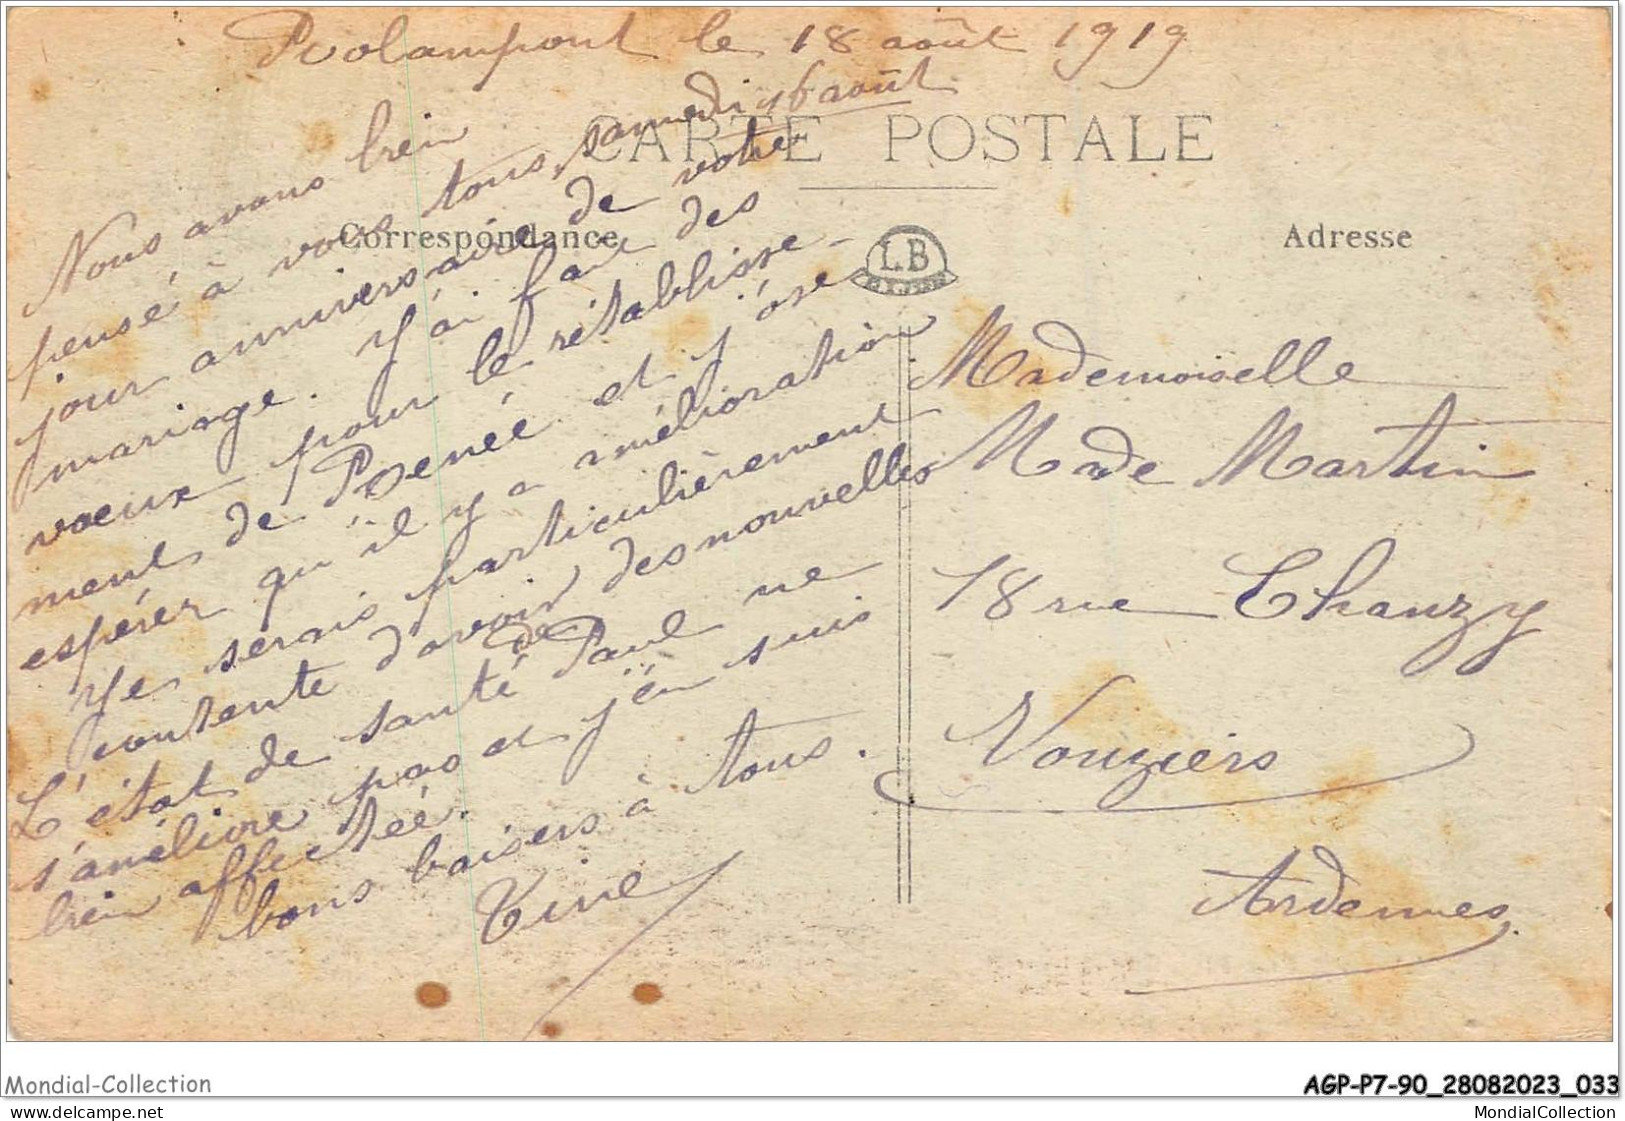 Rolampont le 18 août 1919
CARTE POSTALE
Correspondance
LB
Adresse
Nous avons bien
pensé à vous tous, samedi 16 août
jour anniversaire de votre
mariage. J'ai fait des
voeux pour le rétablisse-
ment de Renée et j'ose
espérer qu'il y a amélioration
Je serais particulièrement
contente d'avoir des nouvelles
L'état de santé de Paul ne
s'améliore pas et j'en suis
bien affectée.
bons baisers à tous.
Mademoiselle
Made Martin
18 rue Chanzy
Vouziers
Ardennes.
Mondial-Collection
AGP-P7-90_28082023_033
MondialCollection